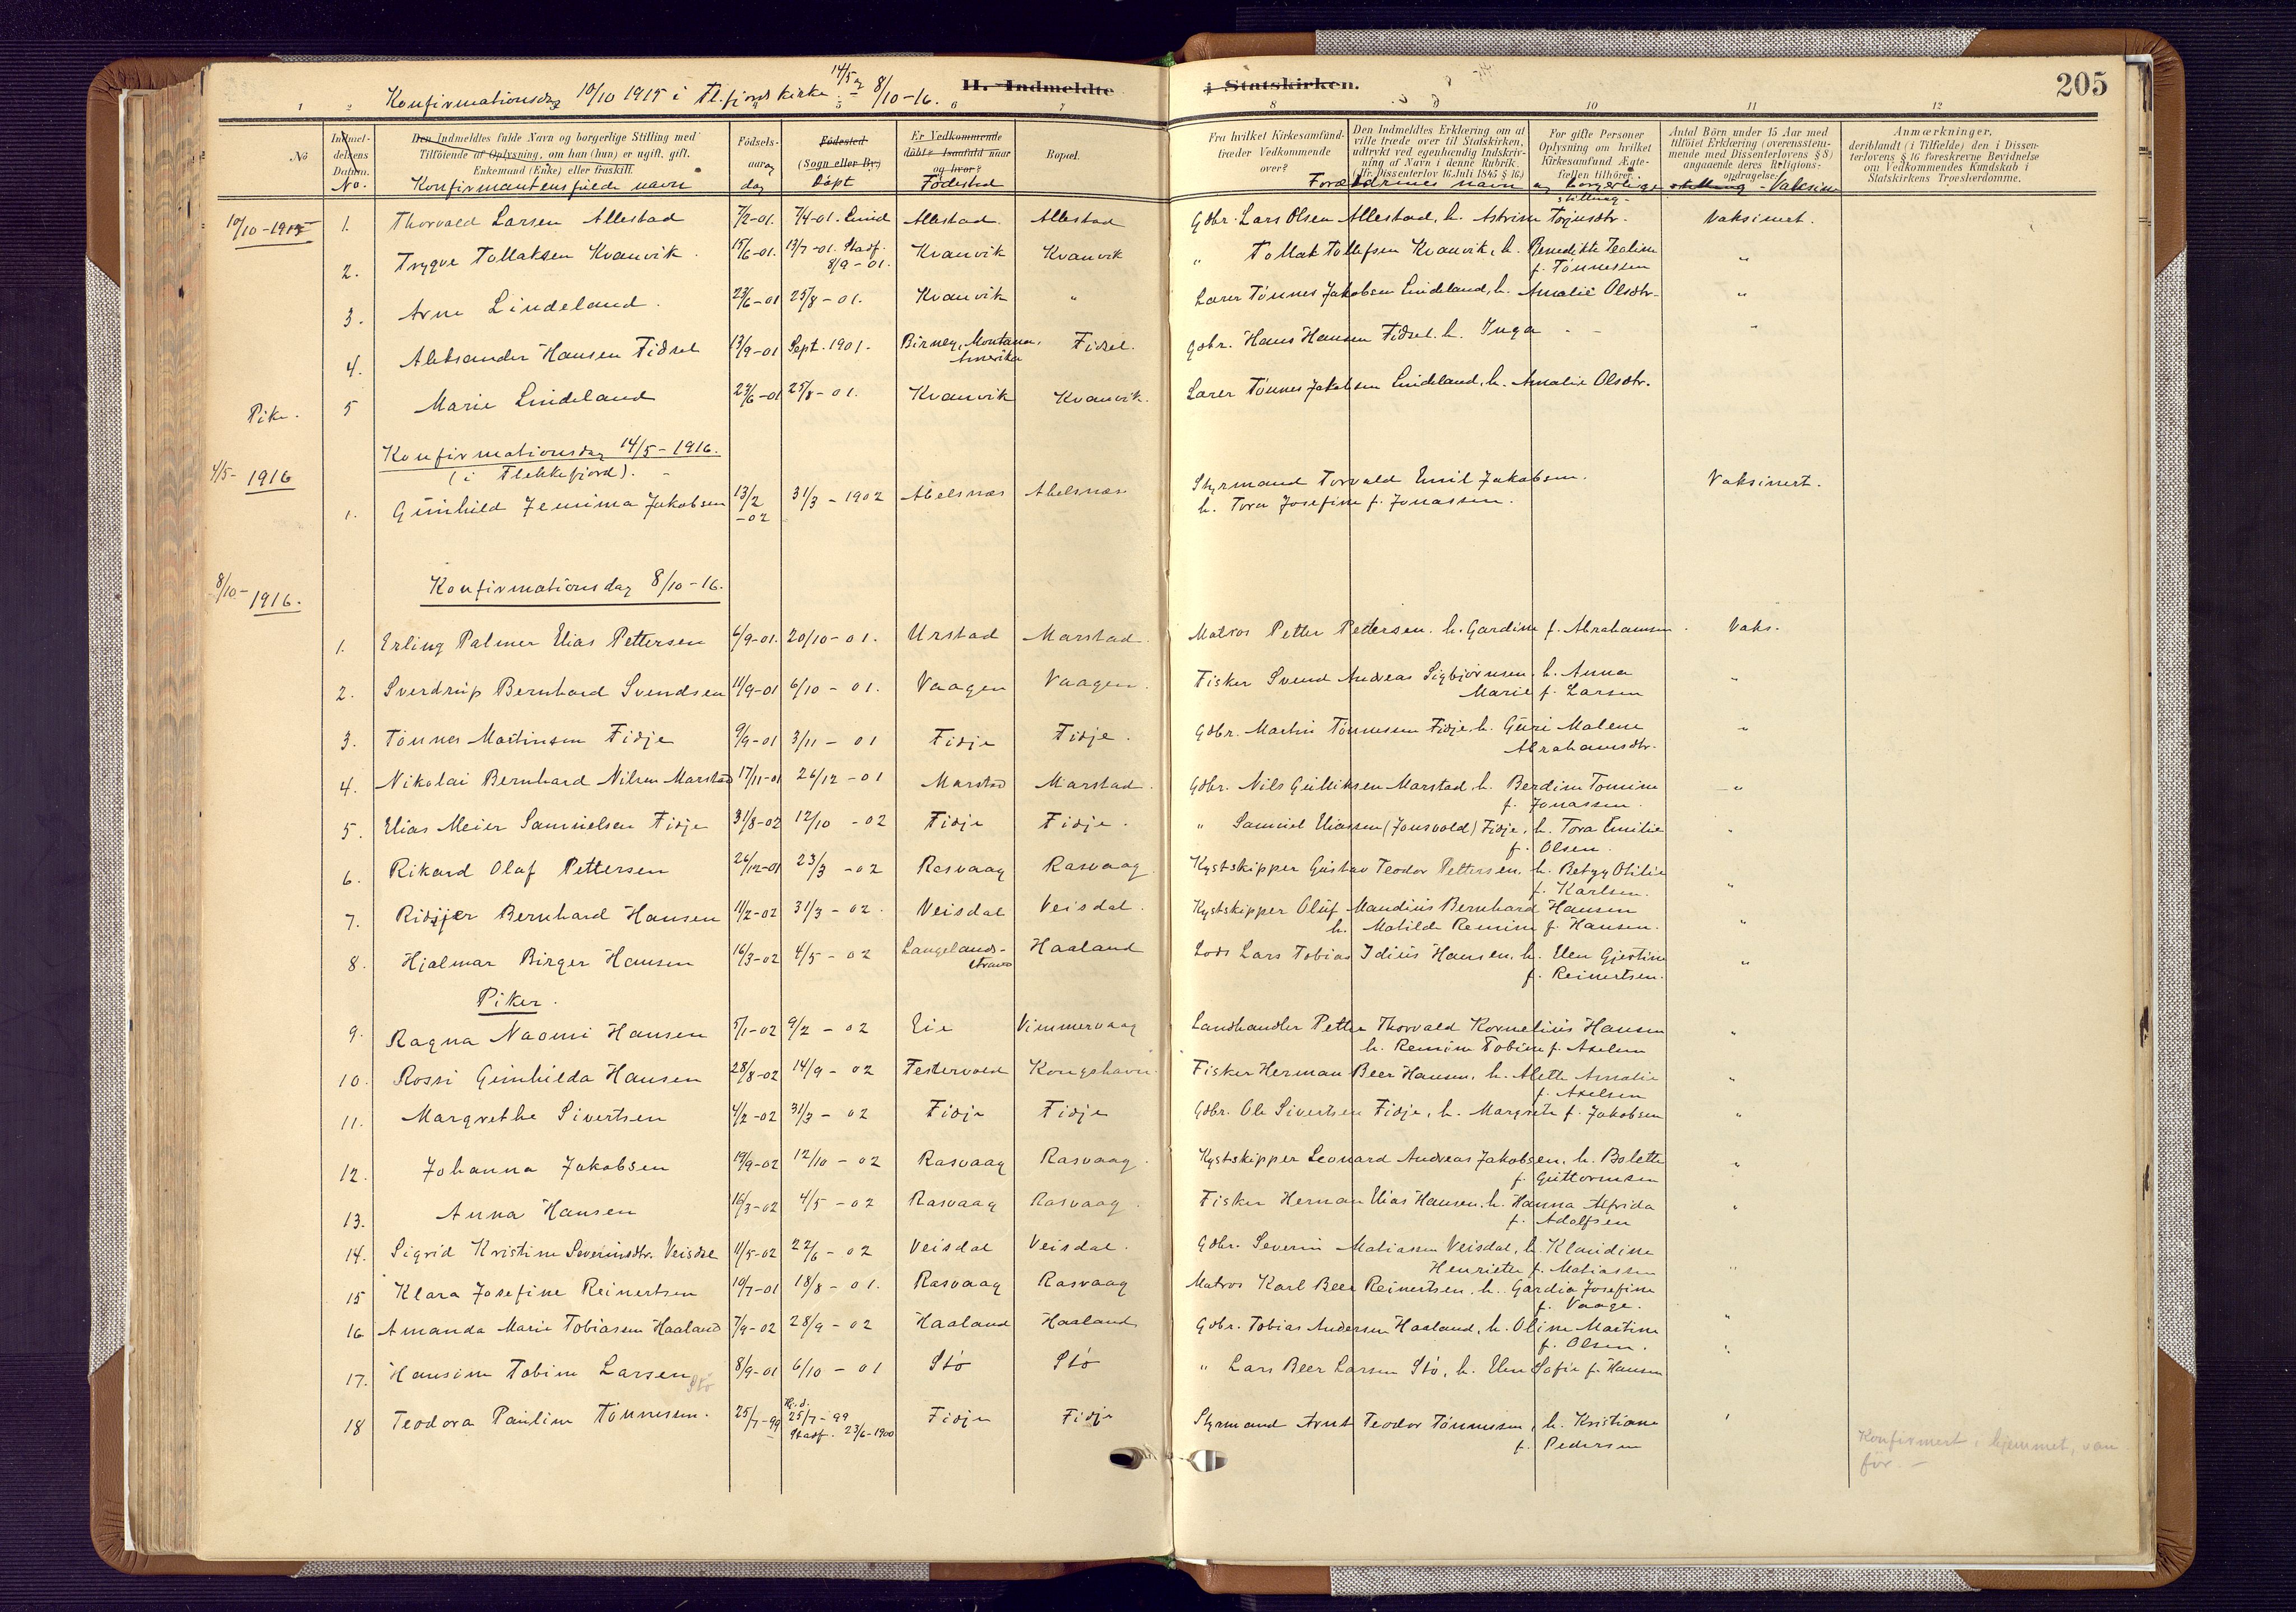 Konfirmationsdag 10/10 1915 i Fl.fjord kirke. 14/5 og 8/10-16. H. Indmeldte i Statskirken. 205
1 2 5 6 7 8 9 10 11 12
No Indmeldelsens Datum. No.
Den Indmeldtes fulde Navn og borgerlige Stilling med Tilføiende af Oplysning, om han (hun) er ugift, gift. Enkemand (Enke) eller fraskilt. Konfirmantens fulde navn
Fødselsaar og dag
Fødested (Sogn eller By.) Døpt
Er Vedkommende døbt Isaafald naar og hvor? Fødested
Bopæl.
Fra hvilket Kirkesamfund træder Vedkommende over?
Den Indmeldtes Erklæring om at ville træde over til Statskirken, udtrykt ved egenhændig Indskrivning af Navn i denne Rubrik. (Jfr. Dissenterlov 16 Juli 1845 § 16.)
For gifte Personer Oplysning om hvilket Kirkesamfund Ægtefællen tilhører.
Forældrenes navn og borgerlige stilling
Antal Børn under 15 Aar med tilføiet Erklæring (overensstemmende med Dissenterlovens § 8) angaaende deres Religionsopdragelse. Vaksine
Anmærkninger, deriblandt (i Tilfælde) den i Dissenterlovens § 16 foreskrevne Bevidnelse om Vedkommendes Kundskab i Statskirkens Troeslærdomme.
10/10-1915 1. Thorvald Larsen Allestad 7/2-01. 7/4-01. Lund Allestad. Allestad Gdbr. Lars Olsen Allestad, h. Astrine Torjusdtr. Vaksinert.
2. Trygve Tollaksen Kvanvik. 15/6-01. 13/7-01. Stadf. 8/9-01. Kvanvik Kvanvik " Tollak Tollefsen Kvanvik, h. Benedikte Teoline f. Tønnessen "
3. Arne Lindeland. 23/6-01 25/8-01. Kvanvik " Lærer Tønnes Jakobsen Lindeland, h. Amalie Olsdtr. "
4. Aleksander Hansen Fidsel 13/9-01 Sept. 1901. Birney, Montana, Amerika Fidsel. Gdbr. Hans Hansen Fidsel. h. Inga - - "
Pike. 5 Marie Lindeland 23/6-01 25/8-01. Kvanvik Kvanvik. Lærer Tønnes Jakobsen Lindeland, h. Amalie Olsdtr.
Konfirmationsdag 14/5-1916.
4/5-1916 (i Flekkefjord).
1. Gunhild Jemima Jakobsen 13/2-02 31/3-1902 Abelsnæs Abelsnæs Styrmand Torvald Emil Jakobsen. h. Tora Josefine f. Jonassen. Vaksinert.
8/10-1916. Konfirmationsdag 8/10-16.
1. Erling Palmer Elias Pettersen 6/9-01. 20/10-01. Urstad Marstad. Matros Petter Pettersen. h. Gardine f. Abrahamsen. Vaks.
2. Sverdrup Bernhard Svendsen 11/9-01 6/10-01. Vaagen Vaagen. Fisker Svend Andreas Sigbjørnsen. h. Anna Marie f. Larsen "
3. Tønnes Martinsen Fidje 9/9-01 3/11-01 Fidje Fidje. Gdbr. Martin Tønnesen Fidje. h. Guri Malene Abrahamsdtr. "
4. Nikolai Bernhard Nilsen Marstad 17/11-01 26/12-01 Marstad Marstad. Gdbr. Nils Gulliksen Marstad, h. Berdine Tomine f. Jonassen. "
5. Elias Meier Samuelsen Fidje 31/8-02 12/10-02 Fidje Fidje. " Samuel Eliassen (Jonsvold) Fidje, h. Tora Emilie f. Olsen. "
6. Rikard Olaf Pettersen 26/12-01 23/3-02 Rasvaag Rasvaag Kystskipper Gustav Teodor Pettersen. h. Betzy Otilie f. Karlsen. "
7. Ridsjer Bernhard Hansen 11/2-02 31/3-02. Veisdal Veisdal. Kystskipper Oluf Mandius Bernhard Hansen h. Matilde Remine f. Hansen. "
8. Hjalmar Birger Hansen 16/3-02 4/5-02 Langelandsstrand Haaland Lods Lars Tobias Idius Hansen, h. Elen Gjertine f. Reinertsen. "
Piker.
9. Ragna Naomi Hansen 5/1-02 9/2-02 Eie Vimmervaag Landhandler Petter Thorvald Kornelius Hansen h. Remine Tobine f. Axelsen "
10. Rossi Gunhilda Hansen 28/8-02 14/9-02 Festervold Kongshavn. Fisker Herman Beer Hansen, h. Alette Amalie f. Axelsen "
11. Margrethe Sivertsen 4/2-02 31/3-02 Fidje Fidje Gdbr. Ole Sivertsen Fidje, h. Margrete f. Jakobsen "
12. Johanna Jakobsen 19/9-02 12/10-02 Rasvaag Rasvaag. Kystskipper Leonard Andreas Jakobsen. h. Bolette f. Guttormsen "
13. Anna Hansen 16/3-02 4/5-02 Rasvaag Rasvaag. Fisker Herman Elias Hansen. h. Hanna Alfrida f. Adolfsen "
14. Sigrid Kristine Severinsdtr. Veisdal 11/5-02 22/6-02 Veisdal Veisdal. Gdbr. Severin Matiassen Veisdal, h. Klaudine Henriette f. Matiassen "
15 Klara Josefine Reinertsen 10/7-01 18/8-01. Rasvaag Rasvaag Matros Karl Beer Reinertsen. h. Gardia Josefine f. Vaage. "
16 Amanda Marie Tobiasen Haaland 7/9-02 28/9-02 Haaland Haaland Gdbr. Tobias Andersen Haaland, h. Oline Martine f. Olsen. "
17. Hansine Tobine Larsen Stö 8/9-01 6/10-01 Stö Stö " Lars Beer Larsen Stö, h. Elen Sofie f. Hansen
18 Teodora Pauline Tønnesen. 25/7-99 Hj.d. 25/7-99 Stadf. 23/6-1900 Fidje Fidje Styrmand Arnt Teodor Tønnesen, h. Kristiane f. Pedersen " Konfirmert i hjemmet, vanfør. -